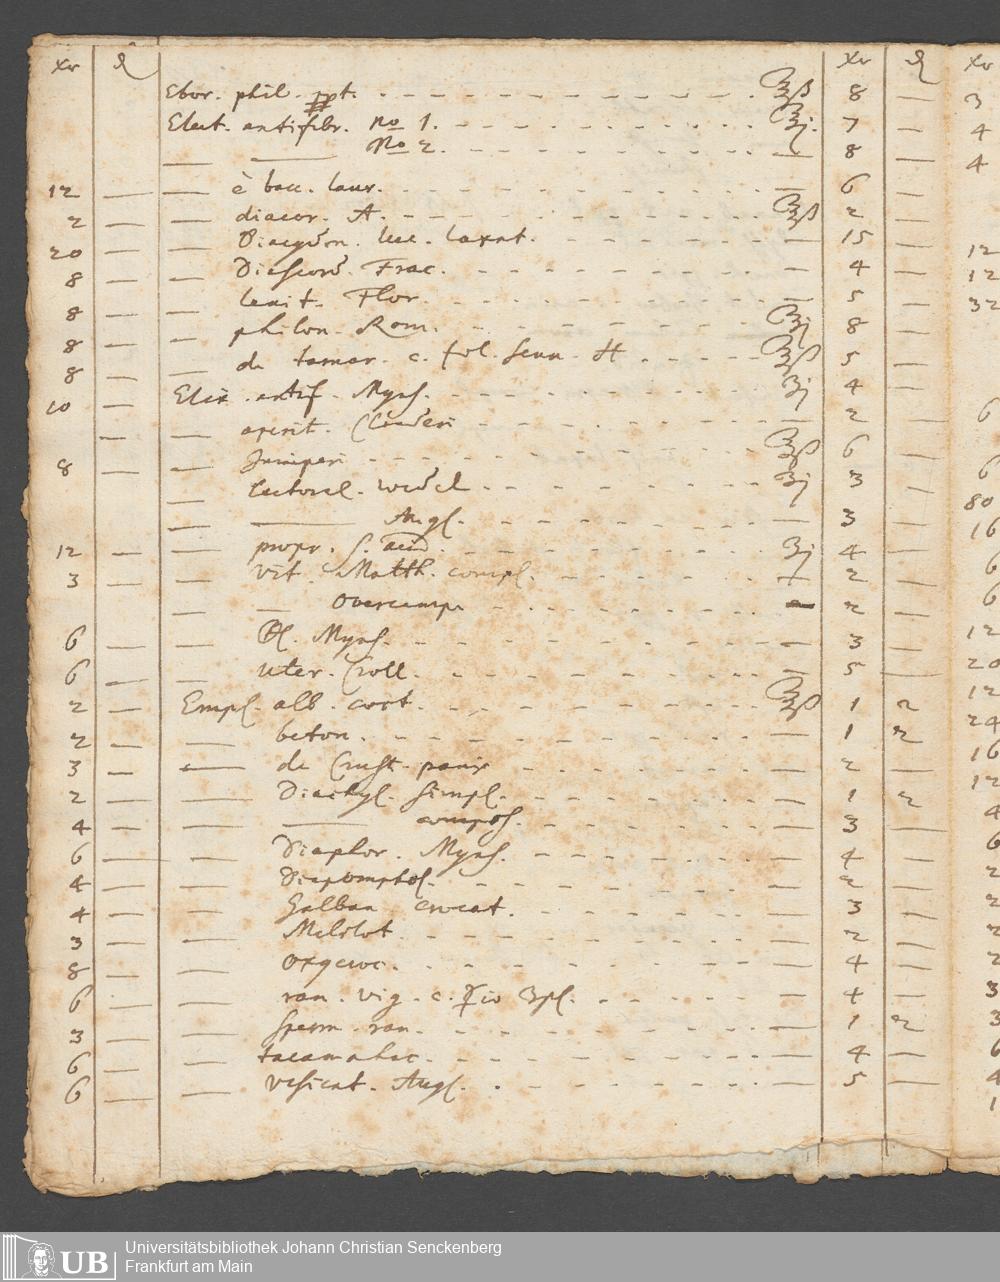 xr ₰ xr ₰ xr
Ebor. phil. ppt. ʒß 8 — 3
Elect. antifebr. no 1. ʒj. 7 — 4
— — No 2. — 8 — 4
12 — — è bacc. laur. — 6 —
2 — — diacor. A. ʒß 2 —
20 — — Diacydon. luc. laxat. — 15 — 12
8 — — Diascord. Frac. — 4 — 12
8 — — lenit. Flor. — 5 — 32
8 — — philon. Rom. ʒj 8 —
8 — — de tamar. c. fol. senn. H ʒß 5 —
10 — Elix. antif. Myns. ʒj 4 —
— — aperit. Clauderi — 2 — 6
8 — — Juniperi ʒß 6 — 6
— pectoral. Wedel ʒj 3 — 80
— — Angl. — 3 — 16
12 — — propr. s. acid. ʒj 4 — 6
3 — — vit. Matth. compl. — 2 — 6
— — Overcamp. — 2 —
6 — — Myns. — 3 — 12
6 — — uter. Croll. — 5 — 20
2 — Empl. alb. coct. ʒß 1 2 12
2 — — beton. — 1 2 24
3 — — de Crust. panis — 2 — 16
2 — — Diachyl. simpl. — 1 2 12
4 — — — compos. — 3 — 4
6 — — Diaphor. Myns. — 4 — 6
4 — — Diapomphol. — 2 — 2
4 — — Galban crocat. — 3 — 2
3 — — Melilot — 2 — 2
8 — — oxycroc. — 4 — 2
6 — — ran. vig. c. ☿io 3pl. — 4 — 3
3 — — sperm. ran. — 1 2 3
6 — — tacamahac. — 4 — 6
6 — — vesicat. Angl. — 5 — 4
1
UB
Universitätsbibliothek Johann Christian Senckenberg
Frankfurt am Main